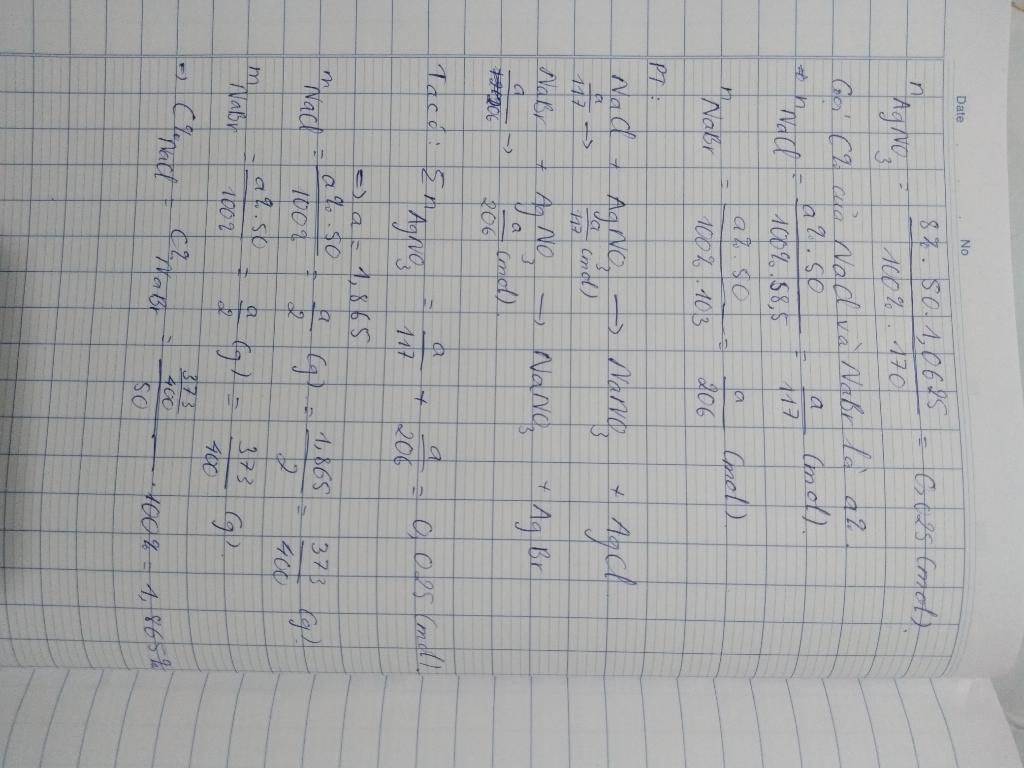 Date
No
n AgNO3 = 8%.50.1,0625 / 100%.170 = 0,025 (mol).
Gọi C% của NaCl và NaBr là a%.
* n NaCl = a%.50 / 100%.58,5 = a/117 (mol).
n NaBr = a%.50 / 100%.103 = a/206 (mol).
PT:
NaCl + AgNO3 → NaNO3 + AgCl
a/117 → a/117 (mol)
NaBr + AgNO3 → NaNO3 + AgBr
a/206 → a/206 (mol).
Ta có: Σn AgNO3 = a/117 + a/206 = 0,025 (mol)
⇔ a = 1,865
m NaCl = a%.50 / 100% = a/2 (g) = 1,865/2 = 373/400 (g).
m NaBr = a%.50 / 100% = a/2 (g) = 373/400 (g).
=> C% NaCl = C% NaBr = 373/400 / 50 .100% = 1,865%